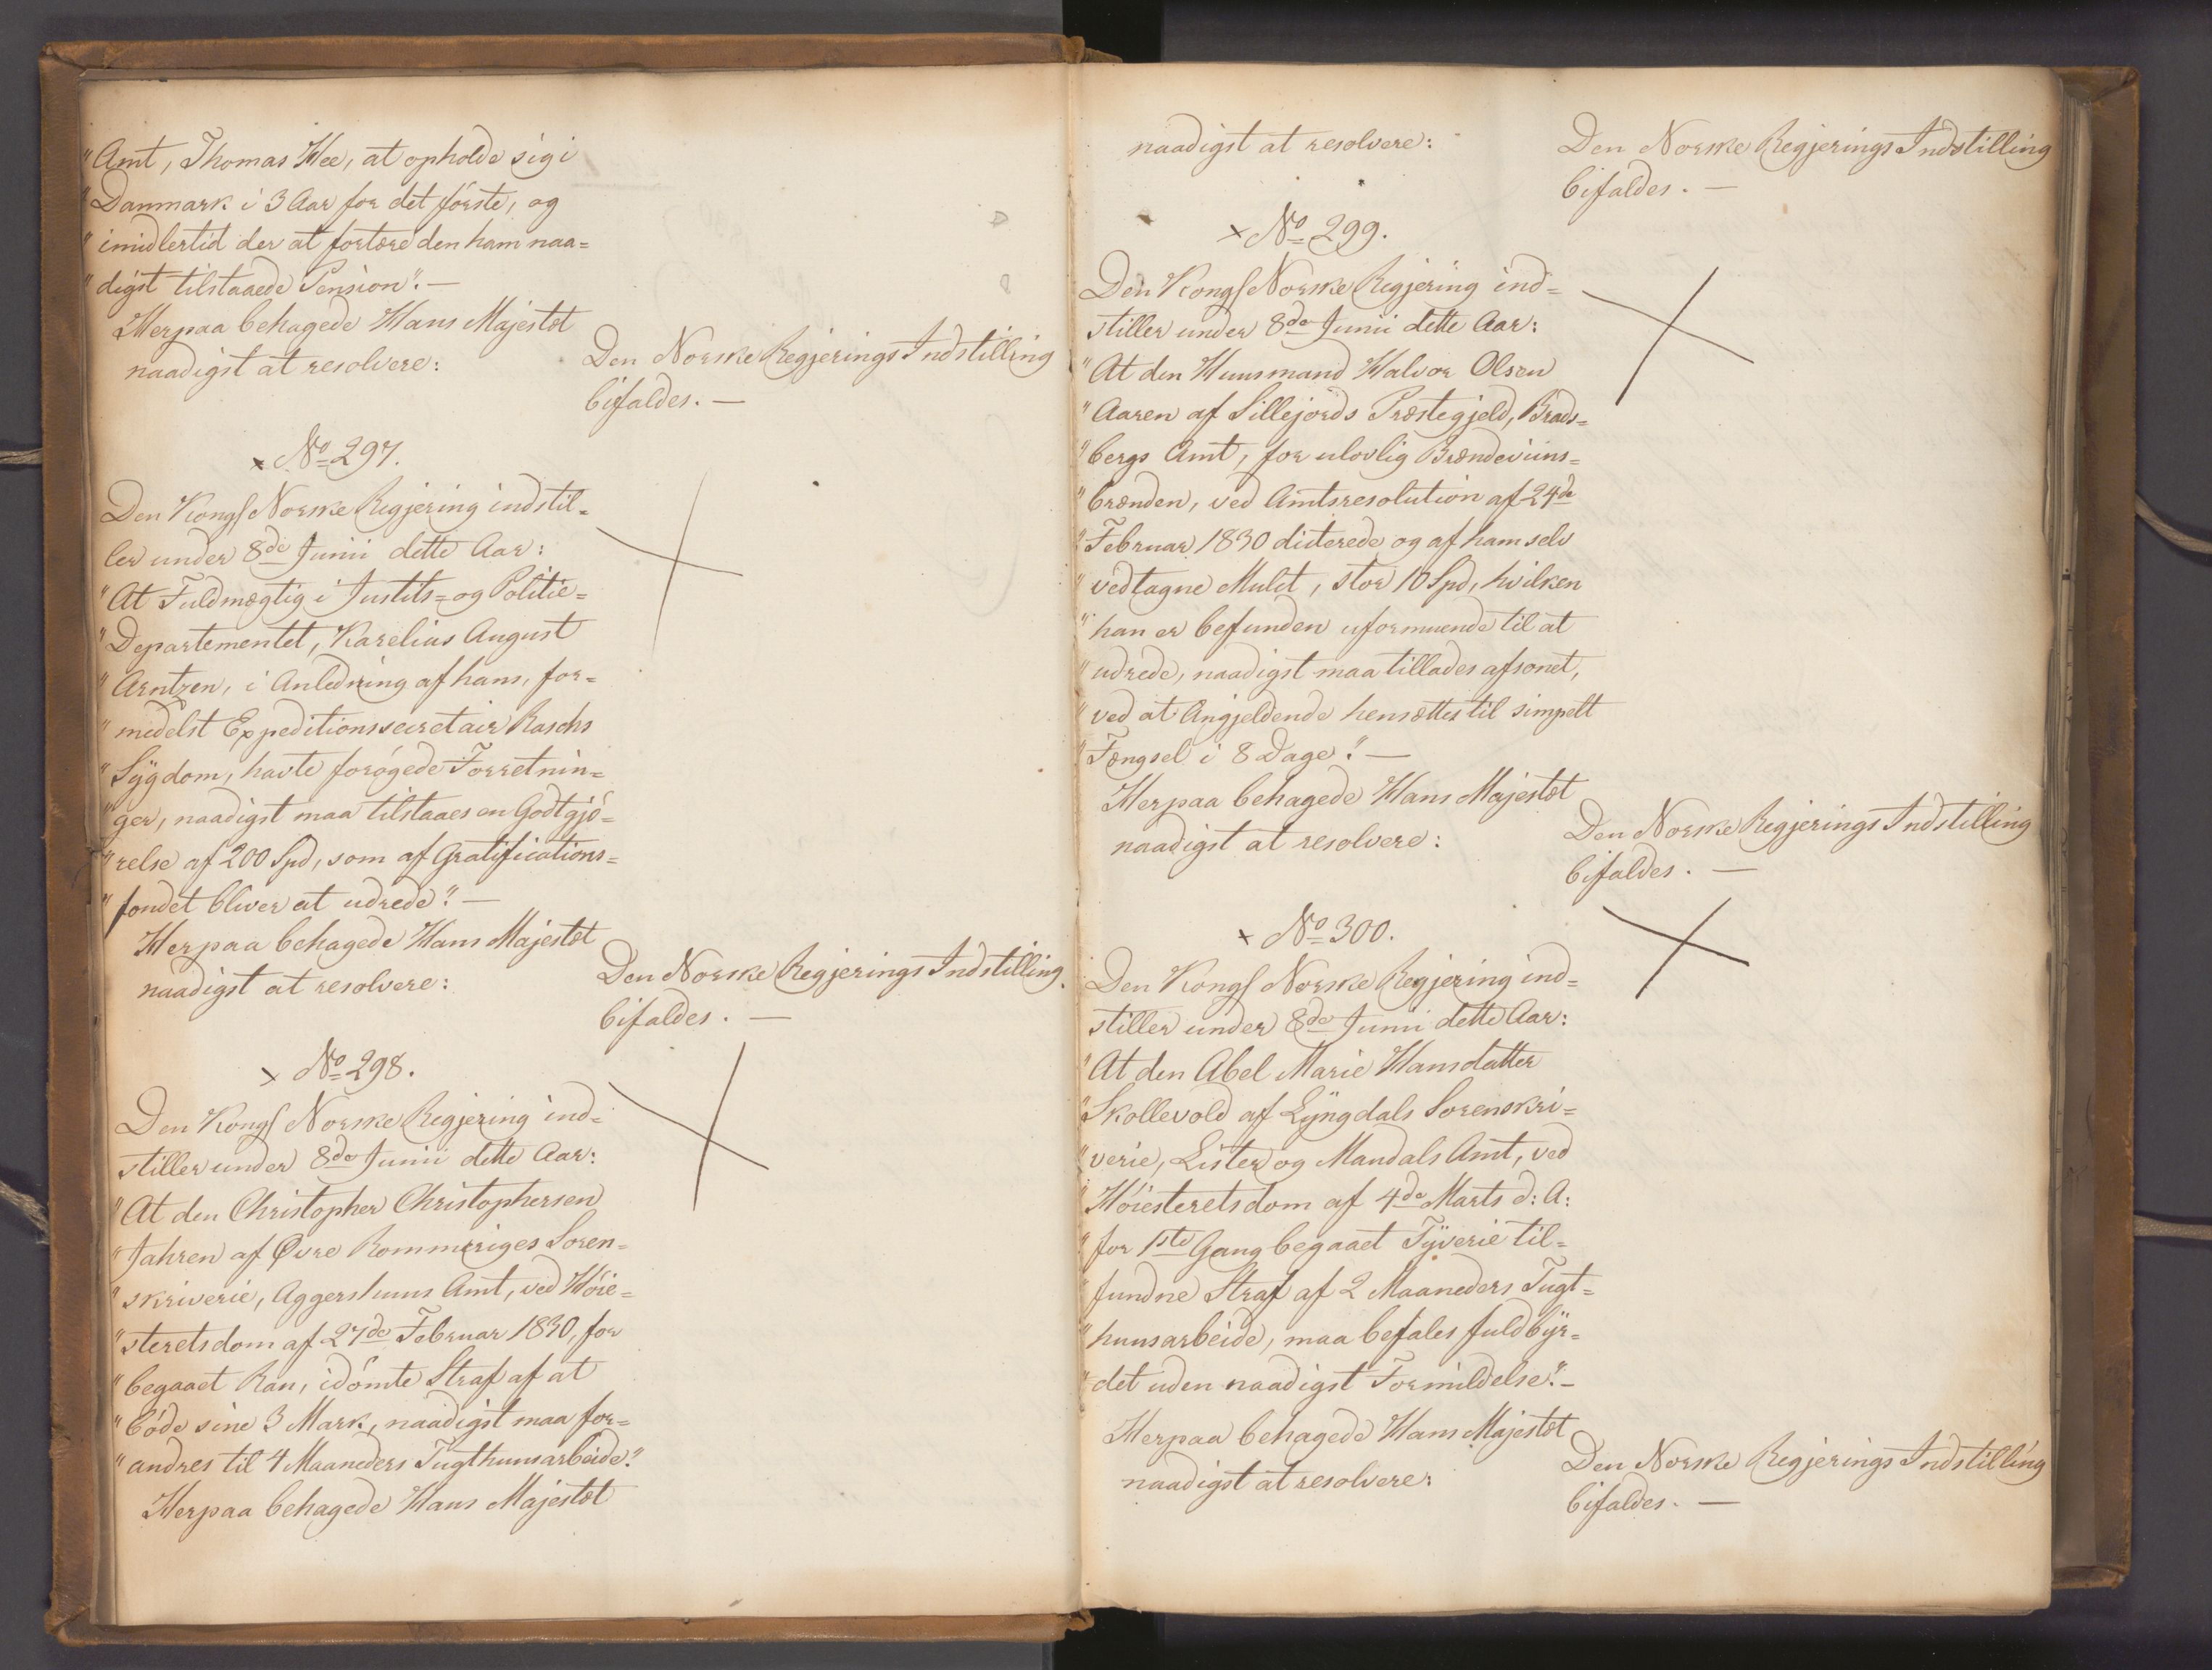 "Amt, Thomas Hee, at opholde sig i
"Danmark i 3 Aar for det förste, og
"imidlertid der at fortære den ham naa=
"digst tilstaaede Pension". —
Herpaa behagede Hans Majestæt
naadigst at resolvere:
Den Norske Regjerings Indstilling
bifaldes. —
x No 297.
Den Kongl Norske Regjering indstil=
ler under 8de Junii dette Aar:
"At Fuldmægtig i Justits= og Politie=
"Departementet, Karelius August
"Arntzen, i Anledning af hans, for=
"medelst Expeditionssecretair Raschs
"Sÿgdom, havte forögede Forretnin=
"ger, naadigst maa tilstaaes en Godtgjö=
"relse af 200 Spd, som af Gratifications=
"fondet bliver at udrede". —
Herpaa behagede Hans Majestæt
naadigst at resolvere:
Den Norske Regjerings Indstilling
bifaldes. —
x No 298.
Den Kongl Norske Regjering ind=
stiller under 8de Junii dette Aar:
"At den Christopher Christophersen
"Jahren af Øvre Rommeriges Soren=
"skriverie, Aggershuus Amt, ved Höie=
"steretsdom af 27de Februar 1830, for
"begaaet Ran, idömte Straf af at
"böde sine 3 Mark, naadigst maa for=
"andres til 4 Maaneders Tugthuusarbeide."
Herpaa behagede Hans Majestæt
naadigst at resolvere:
Den Norske Regjerings Indstilling
bifaldes. —
x No 299.
Den Kongl Norske Regjering ind=
stiller under 8de Junii dette Aar:
"At den Huusmand Halvor Olsen
"Aaren af Sillejords Præstegjeld, Brads=
"bergs Amt, for ulovlig Brændeviins=
"brænden, ved Amtsresolution af 24de
"Februar 1830 dicterede og af ham selv
"vedtagne Mulct, stor 10 Spd, hvilken
"han er befunden uformuende til at
"udrede, naadigst maa tillades afsonet,
"ved at Angjeldende hensættes til simpelt
"Fængsel i 8 Dage". —
Herpaa behagede Hans Majestæt
naadigst at resolvere:
Den Norske Regjerings Indstilling
bifaldes. —
x No 300.
Den Kongl Norske Regjering ind=
stiller under 8de Junii dette Aar:
"At den Abel Marie Hansdatter
"Skollevold af Lÿngdals Sorenskri=
"verie, Lister og Mandals Amt, ved
"Höiesteretsdom af 4de Marts d: A:
"for 1ste Gang begaaet Tÿverie til=
"fundne Straf af 2 Maaneders Tugt=
"huusarbeide, maa befales fuldbÿr=
"det uden naadigst Formildelse". —
Herpaa behagede Hans Majestæt
naadigst at resolvere:
Den Norske Regjerings Indstilling
bifaldes. —